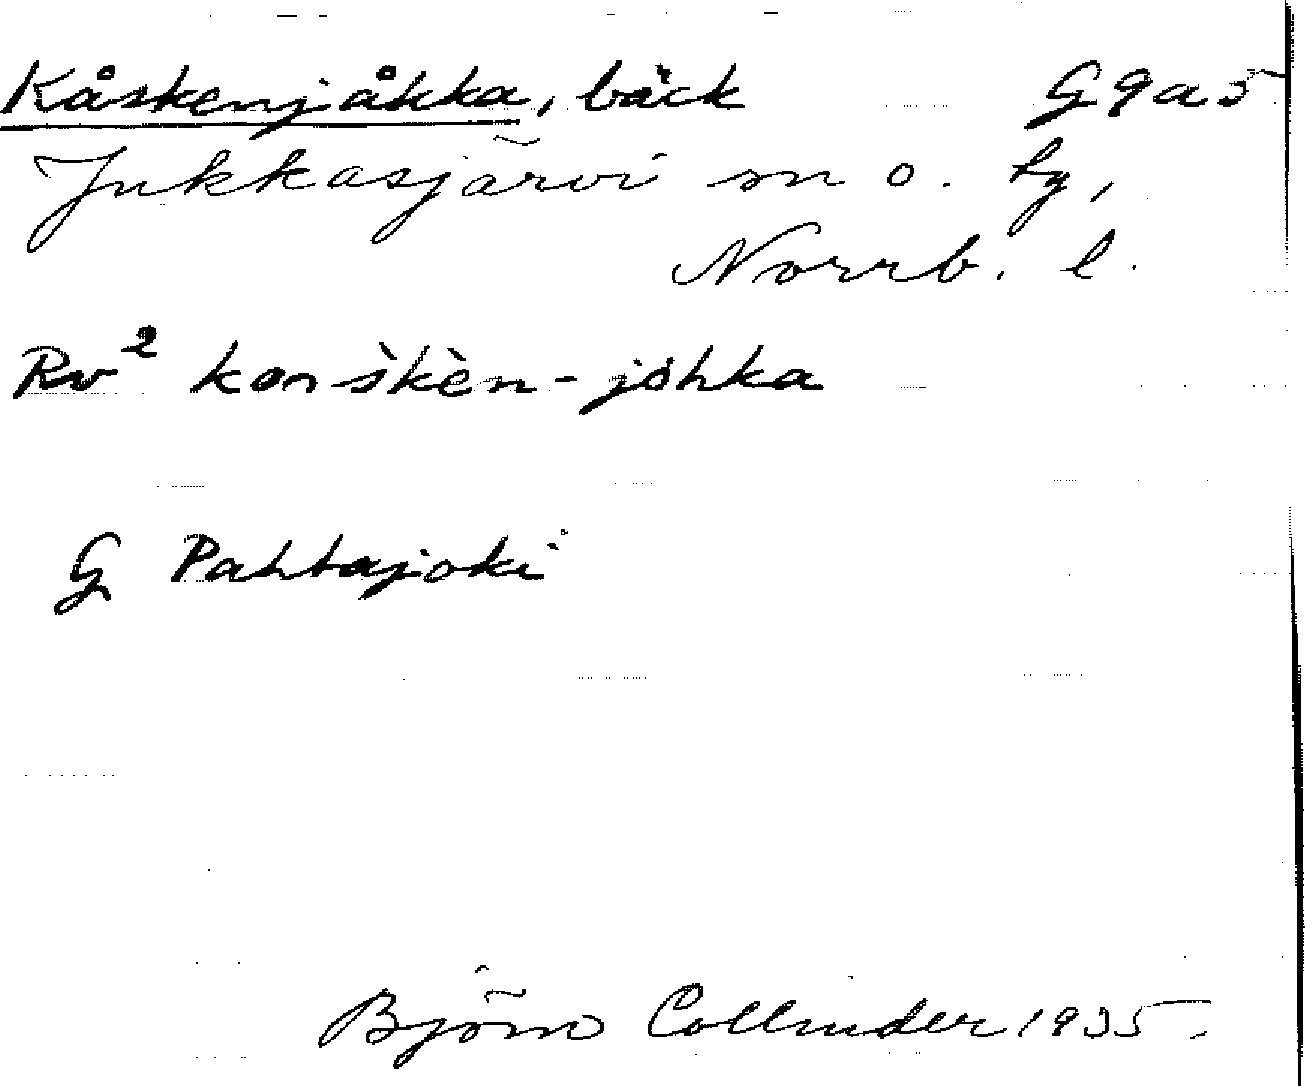 Kåskenjåkka, bäck G9a5
Jukkasjärvi sn o. tg,
Norrb. l.
Rv² konškèn-jòhka
G Pahtajoki
Björn Collinder 1935.